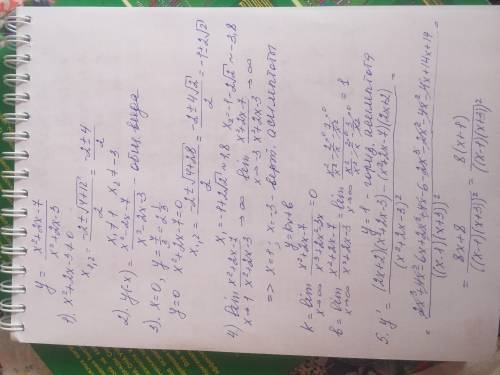 y = \frac{x²+2x-7}{x²+2x-3}
1). x²+2x-3 ≠ 0
x₁,₂ = \frac{-2±√(4+12)}{2} = \frac{-2±4}{2}
x₁ ≠ 1 x₂ ≠ -3
2) y(-x) = \frac{x²-2x-7}{x²-2x-3} - общ. вида
3) x=0, y = \frac{7}{3} = 2\frac{1}{3}
y=0 x²+2x-7=0
x₁,₂ = \frac{-2±√(4+28)}{2} = \frac{-2±4√2}{2} = -1±2√2
x₁ = -1+2√2 ≈ 1,8 x₂ = -1-2√2 ≈ -3,8
4) lim x→1 \frac{x²+2x-7}{x²+2x-3} → ∞ lim x→-3 \frac{x²+2x-7}{x²+2x-3} → ∞
=> x=1, x=-3 - верт. асимптоты
y=kx+b
k = lim x→∞ \frac{x²+2x-7}{x³+2x²-3x} = 0
b = lim x→∞ \frac{x²+2x-7}{x²+2x-3} = lim x→∞ = 1
y=1 - гориз. асимптота
5. y' = \frac{(2x+2)(x²+2x-3) - (x²+2x-7)(2x+2)}{(x²+2x-3)²} =
= \frac{2x³+4x²-6x+2x²+4x-6-2x³-2x²-4x²-4x+14x+14}{((x-1)(x+3))²} =
= \frac{8x+8}{((x-1)(x+3))²} = \frac{8(x+1)}{((x-1)(x+3))²}